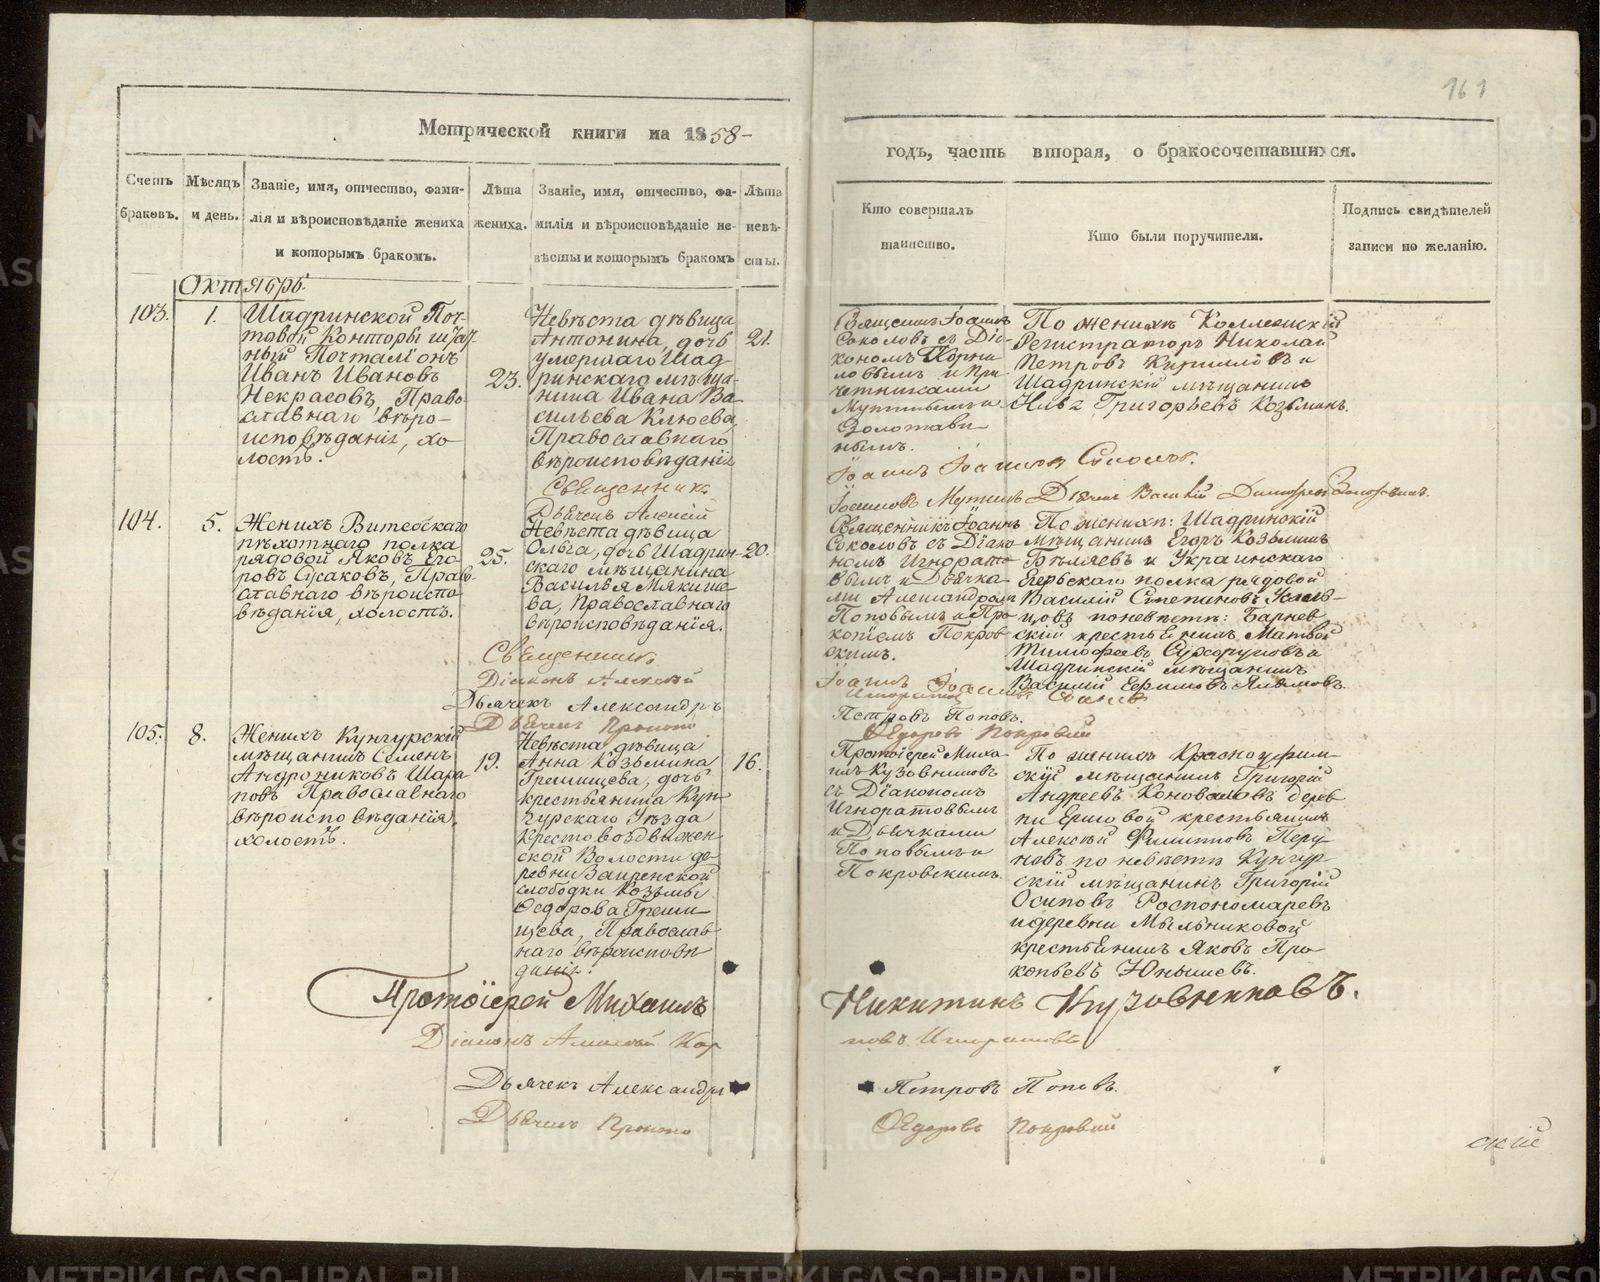 161
Метрической книги на 1858-
годъ, часть вторая, о бракосочетавшихся.
Счетъ браковъ.
Мѣсяцъ и день.
Званіе, имя, отчество, фами-
лія и вѣроисповѣданіе жениха
и которымъ бракомъ.
Лѣта
жениха.
Званіе, имя, отчество, фа-
милія и вѣроисповѣданіе не-
вѣсты и которымъ бракомъ
Лѣта
невѣ-
сты.
Кто совершалъ
таинство.
Кто были поручители.
Подпись свидѣтелей
записи по желанію.
Октябрь.
103.
1.
Шадринской Поч-
товой Конторы
ный Почталіонъ
Иванъ Ивановъ
Некрасовъ, Право-
славнаго вѣро-
исповѣданія, хо-
лостъ.
23.
Невѣста дѣвица
Антонина, дочь
умершаго Шад-
ринскаго мѣща-
нина Ивана Ва-
сильева Клюева,
Православнаго
вѣроисповѣданія
21.
Священникъ Іоаннъ
Соколовъ съ Діа-
кономъ
ловымъ и при-
четниками
Мутинымъ и
Золотави-
нымъ.
По женихѣ Коллежскій
Регистраторъ Николай
Петровъ Кирилловъ и
Шадринскій мѣщанинъ
Илья Григорьевъ Козьминъ.
Священникъ
Дьячекъ Алексій
104.
5.
Женихъ Витебскаго
пѣхотнаго полка
рядовой Яковъ Его-
ровъ Право-
славнаго вѣроиспо-
вѣданія, холостъ.
25.
Невѣста дѣвица
Ольга, дочь Шадрин-
скаго мѣщанина
Василья Мякише-
ва, Православнаго
вѣроисповѣданія.
20.
Священникъ Іоаннъ
Соколовъ съ Діако-
номъ Игнорато-
вымъ и Дьячка-
ми Александромъ
Поповымъ и Про-
копіемъ Покров-
скимъ.
По женихѣ: Шадринскій
мѣщанинъ Егоръ Козьминъ
Бѣляевъ и Украинскаго
Егерьскаго полка рядовой
Василій Степановъ
цовъ по невѣстѣ: Барнев-
скій крестьянинъ Матвей
Тимофеевъ Сухоруковъ и
Шадринскій мѣщанинъ
Василій Ефимовъ
Священникъ
Діаконъ Алексѣй
Дьячекъ Александръ
Дьячекъ Прокопій
Петровъ Поповъ.
Ѳедоровъ Покровскій
105.
8.
Женихъ Кунгурскій
мѣщанинъ Семенъ
Андрониковъ Шара-
повъ Православнаго
вѣроисповѣданія,
холостъ.
19.
Невѣста дѣвица
Анна Козьмина
Гремищева, дочь
крестьянина Кун-
гурскаго Уѣзда
Крестовоздвижен-
ской Волости де-
ревни Заиренской
слободки Козьмы
Ѳедорова Греми-
щева, Православ-
наго вѣроисповѣ-
данія.
16.
Протоіерей Миха-
илъ Кузовниковъ
съ Діакономъ
Игноратовымъ
и Дьячками
Поповымъ и
Покровскимъ.
По женихѣ Красноуфим-
скій мѣщанинъ Григорій
Андреевъ Коноваловъ дерев-
ни Ершовой крестьянинъ
Алексѣй Филиповъ Перу-
новъ, по невѣстѣ Кунгур-
скій мѣщанинъ Григорій
Осиповъ Роспономаревъ
и деревни Мыльниковой
крестьянинъ Яковъ Про-
копьевъ Юнышевъ.
Протоіерей Михаилъ Никитинъ Кузовниковъ.
Дьячекъ Александръ Петровъ Поповъ.
Дьячекъ Ѳедоровъ Покровскій
скій